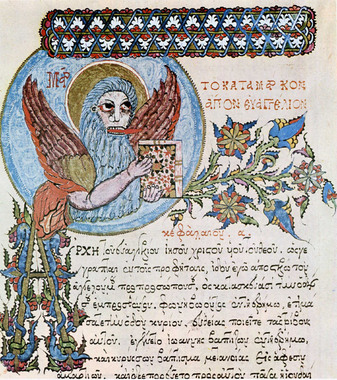 ΜΑΡ
ΤΟ ΚΑΤΑ ΜΑΡΚΟΝ
ΑΓΙΟΝ ΕΥΑΓΓΕΛΙΟΝ
κεφάλαιον α
ΑΡΧΗ τοῦ εὐαγγελίου ἰησοῦ χριστοῦ υἱοῦ τοῦ θεοῦ, ὡς γέ
γραπται ἐν τοῖς προφήταις, ἰδοὺ ἐγὼ ἀποστέλλω τὸν
ἄγγελόν μου πρὸ προσώπου σου, ὃς κατασκευάσει τὴν ὁδόν
σου ἔμπροσθέν σου, φωνὴ βοῶντος ἐν τῇ ἐρήμω, ἑτοιμά
σατε τὴν ὁδὸν κυρίου, εὐθείας ποιεῖτε τὰς τρίβους
αὐτοῦ. ἐγένετο ἰωάννης βαπτίζων ἐν τῇ ἐρήμω,
καὶ κηρύσσων βάπτισμα μετανοίας εἰς ἄφεσιν
ἁμαρτιῶν, καὶ ἐξεπορεύετο πρὸς αὐτὸν πᾶσα ἡ